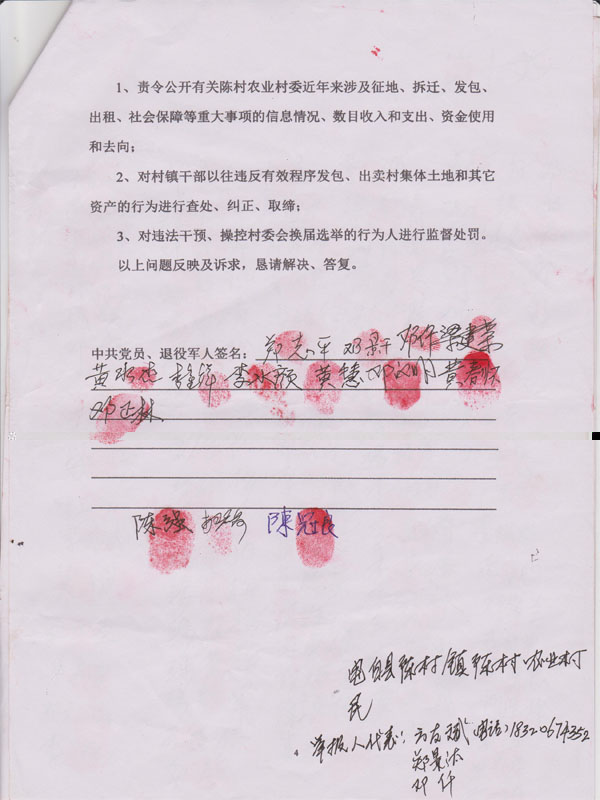 1、责令公开有关陈村农业村委近年来涉及征地、拆迁、发包、
出租、社会保障等重大事项的信息情况、数目收入和支出、资金使用
和去向；
2、对村镇干部以往违反有效程序发包、出卖村集体土地和其它
资产的行为进行查处、纠正、取缔；
3、对违法干预、操控村委会换届选举的行为人进行监督处罚。
以上问题反映及诉求，恳请解决、答复。
中共党员、退役军人签名：郑志平 邓 邓作 梁建荣
黄水杰 李水颜 黄德 邓
邓正林
陈强 陳冠良
电白县陈村镇陈村农业村
民
举报人代表： (电话) 18320674352
郑景
邓作
4